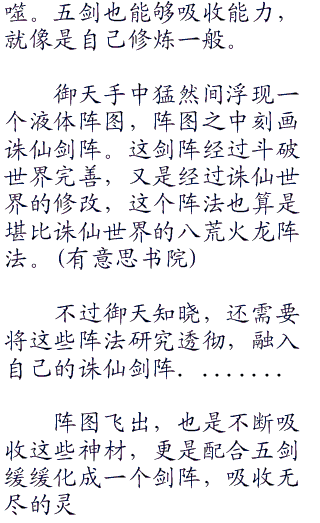 噬。五剑也能够吸收能力，
就像是自己修炼一般。
御天手中猛然间浮现一
个液体阵图，阵图之中刻画
诛仙剑阵。这剑阵经过斗破
世界完善，又是经过诛仙世
界的修改，这个阵法也算是
堪比诛仙世界的八荒火龙阵
法。(有意思书院)
不过御天知晓，还需要
将这些阵法研究透彻，融入
自己的诛仙剑阵．．．．．．．．
阵图飞出，也是不断吸
收这些神材，更是配合五剑
缓缓化成一个剑阵，吸收无
尽的灵